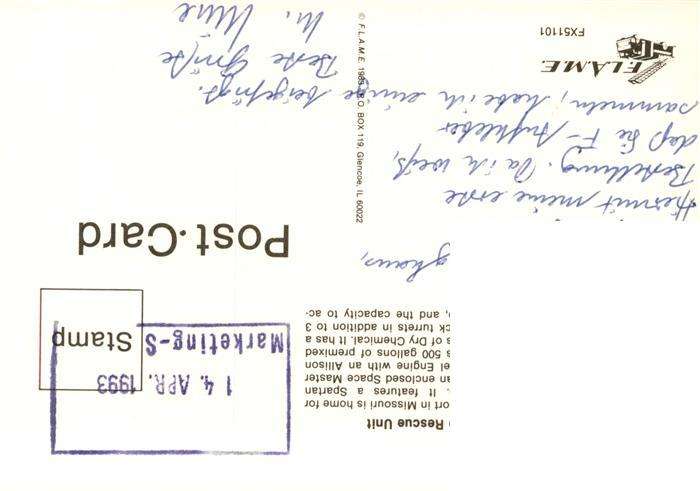 Rescue Unit
ort in Missouri is home for
. It features a Spartan
an enclosed Space Master
el Engine with an Allison
s 500 gallons of premixed
s of Dry Chemical. It has a
ck turrets in addition to 3
, and the capacity to ac-
14. APR. 1993
Marketing-S
Stamp
ghaus,
Post·Card
Hiermit meine erste
Bestellung. Da ich weiß,
daß Sie F-Aufkleber
sammeln, habe ich einige beigefügt.
Beste Grüße
M.
© F.L.A.M.E. P.O. BOX 119, Glencoe, IL 60022
F.L.A.M.E.
FX51101